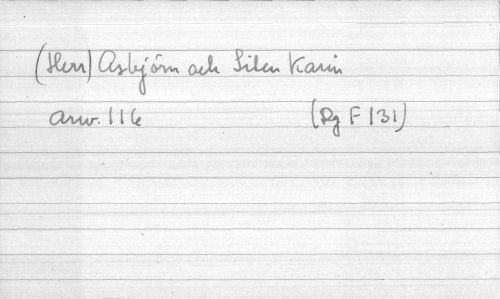 (Herr) Asbjörn och Liten Karin
arw. 116 (Rg F 131)